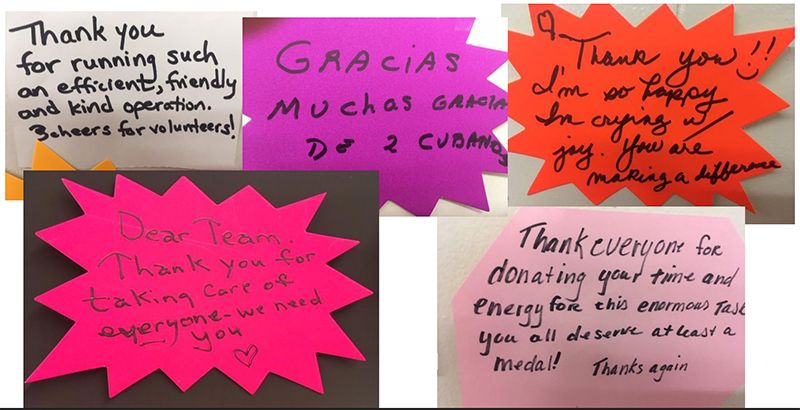 Thank you
for running such
an efficient, friendly
and kind operation.
3 cheers for volunteers!
GRACiAS
MUCHAS GRACIA
DE 2 CUBANOS
Thank you!!
I'm so happy
Im crying w/
joy. You are
making a difference
Dear Team.
Thank you for
taking care of
everyone - we need
you
Thank everyone for
donating your time and
energy fore this enormous Task
you all deserve at least a
medal!
Thanks again